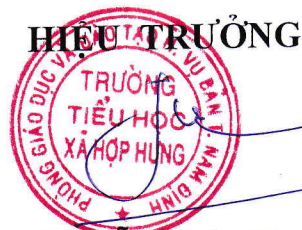 HIỆU TRƯỞNG
PHÒNG GIÁO DỤC VÀ ĐÀO TẠO H. VỤ BẢN T. NAM ĐỊNH
TRƯỜNG
TIỂU HỌC
XÃ HỢP HƯNG